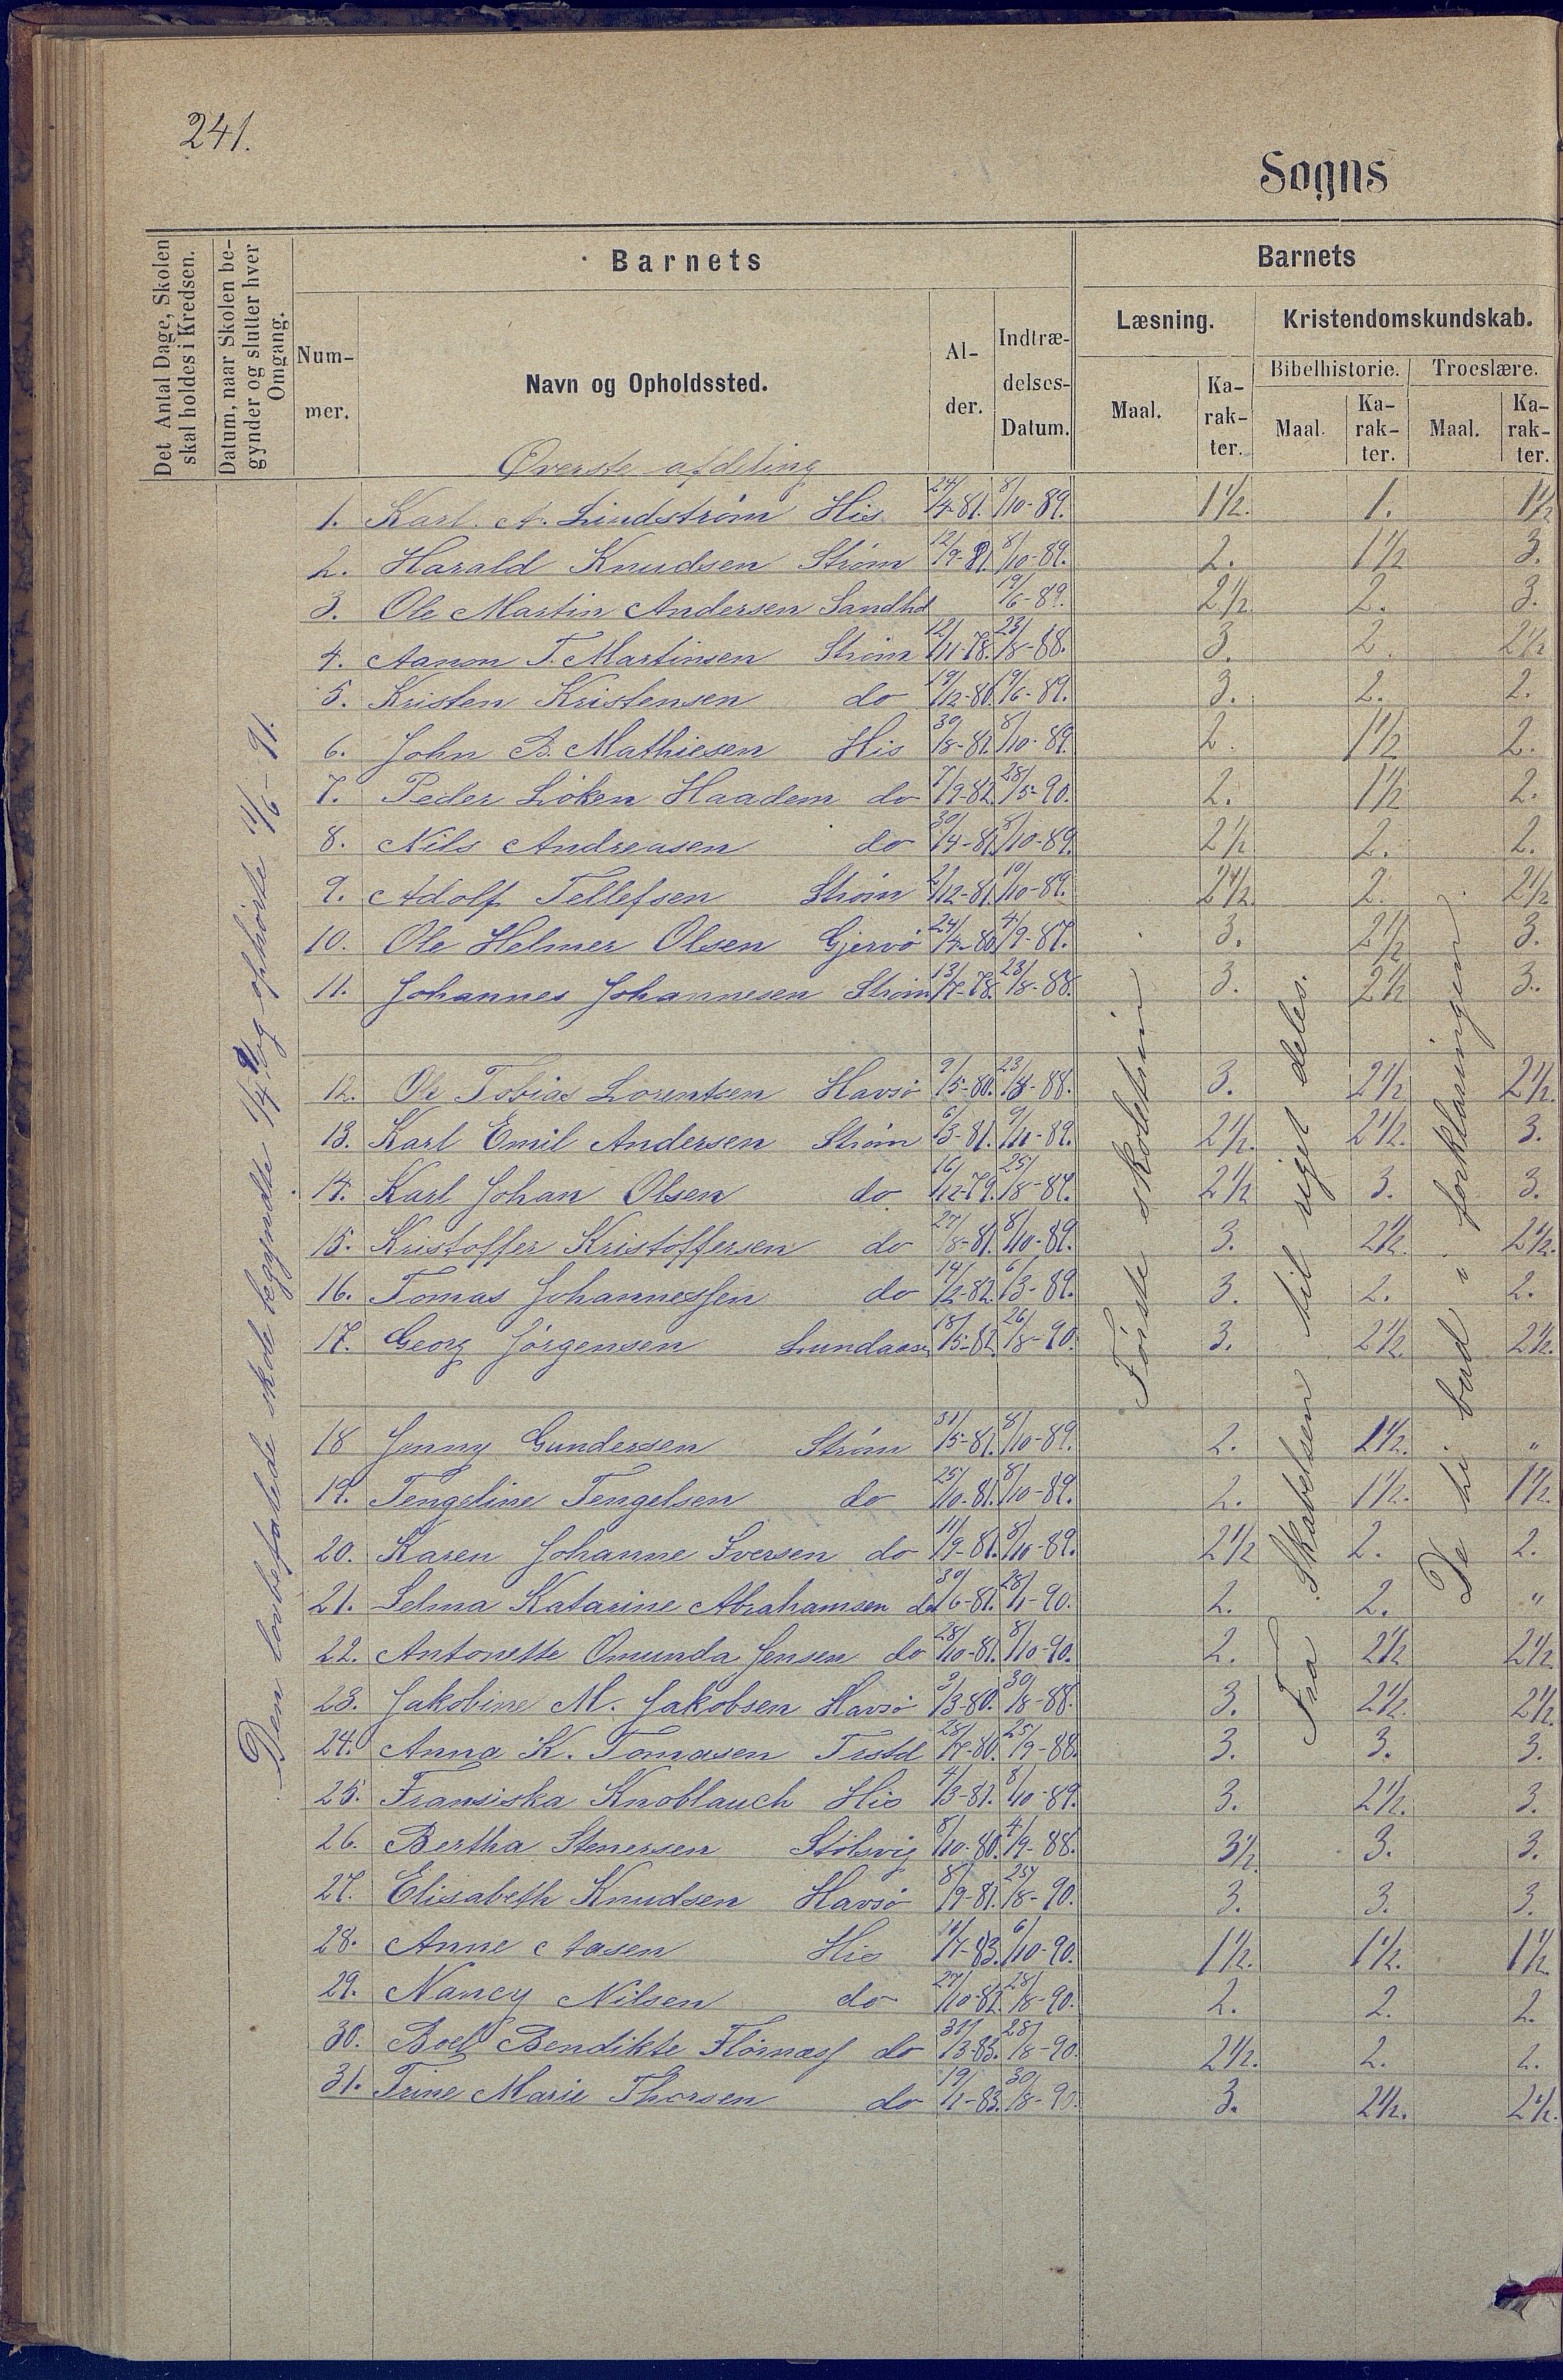 241.
Sogns
Det Antal Dage, Skolen skal holdes i Kredsen.
Datum, naar Skolen begynder og slutter hver Omgang.
Barnets
Barnets
Num-
mer.
Navn og Opholdssted.
Al-
der.
Indtræ-
delses-
Datum.
Læsning.
Kristendomskundskab.
Bibelhistorie.
Troeslære.
Maal.
Ka-
rak-
ter.
Maal.
Ka-
rak-
ter.
Maal.
Ka-
rak-
ter.
Øverste afdeling
Den lovbefalede skole begyndte 1/4 og ophørte 11/6-91.
Første skoletrin
Fra Skabelsen til riget deles.
De ti bud i forklaringen
1. Karl. A. Lindstrøm His 24/4-81. 8/10-89. 1 1/2. 1. 1 1/2
2. Harald Knudsen Strøm 12/9-81. 8/10-89. 2. 1 1/2 3.
3. Ole Martin Andersen Sandhd 19/6-89. 2 1/2. 2. 3.
4. Aanon T. Martinsen Strøm 12/11-78. 23/8-88. 3. 2. 2 1/2
5. Kristen Kristensen do 19/12-80. 19/6-89. 3. 2. 2.
6. John B. Mathiesen His 30/8-81. 8/10-89. 2. 1 1/2 2.
7. Peder Løken Haadem do 7/9-82. 28/5-90. 2. 1 1/2 2.
8. Nils Andreasen do 30/4-81. 8/10-89. 2 1/2 2. 2.
9. Adolf Tellefsen Strøm 2/12-81. 10/10-89. 2 1/2. 2. 2 1/2
10. Ole Helmer Olsen Gjervø 24/2-80. 4/9-87. 3. 2 1/2 3.
11. Johannes Johannesen Strøm 13/7-78. 23/8-88. 3. 2 1/2 3.
12. Ole Tobias Lorentsen Havsø 9/5-80. 23/8-88. 3. 2 1/2 2 1/2.
13. Karl Emil Andersen Strøm 6/3-81. 9/10-89. 2 1/2. 2 1/2. 3.
14. Karl Johan Olsen do 16/12-79. 25/8-87. 2 1/2 3. 3.
15. Kristoffer Kristoffersen do 27/8-81. 8/10-89. 3. 2 1/2. 2 1/2.
16. Tomas Johannessen do 14/2-82. 6/3-89. 3. 2. 2.
17. Georg Jørgensen Lundaasen 18/5-82. 26/8-90. 3. 2 1/2. 2 1/2.
18 Jenny Gundersen Strøm 31/5-81. 8/10-89. 2. 1 1/2. "
19. Tengeline Tengelsen do 25/10-81. 8/10-89. 2. 1 1/2. 1 1/2.
20. Karen Johanne Iversen do 11/9-81. 8/10-89. 2 1/2 2. 2.
21. Selma Katarine Abrahamsen do 30/6-81. 28/1-90. 2. 2. "
22. Antonette Omunda Jensen do 28/10-81. 8/10-90. 2. 2 1/2 2 1/2
23. Jakobine M. Jakobsen Havsø 3/3-80. 30/8-88. 3. 2 1/2. 2 1/2.
24. Anna K. Tomasen Trstd 28/7-80. 25/9-88. 3. 3. 3.
25. Fransiska Knoblauch His 4/3-81. 8/10-89. 3. 2 1/2. 3.
26. Bertha Stenersen Stølsvig 8/10-80. 4/9-88. 3 1/2. 3. 3.
27. Elisabeth Knudsen Havsø 8/9-81. 25/8-90. 3. 3. 3.
28. Anne Aasen His 11/7-83. 6/10-90. 1 1/2. 1 1/2. 1 1/2
29. Nancy Nilsen do 27/10-82. 28/8-90. 2. 2. 2.
30. Boel Bendikte Flørnæss do 31/3-83. 28/8-90. 2 1/2. 2. 2.
31. Trine Marie Thorsen do 19/1-83. 30/8-90. 3. 2 1/2. 2 1/2.